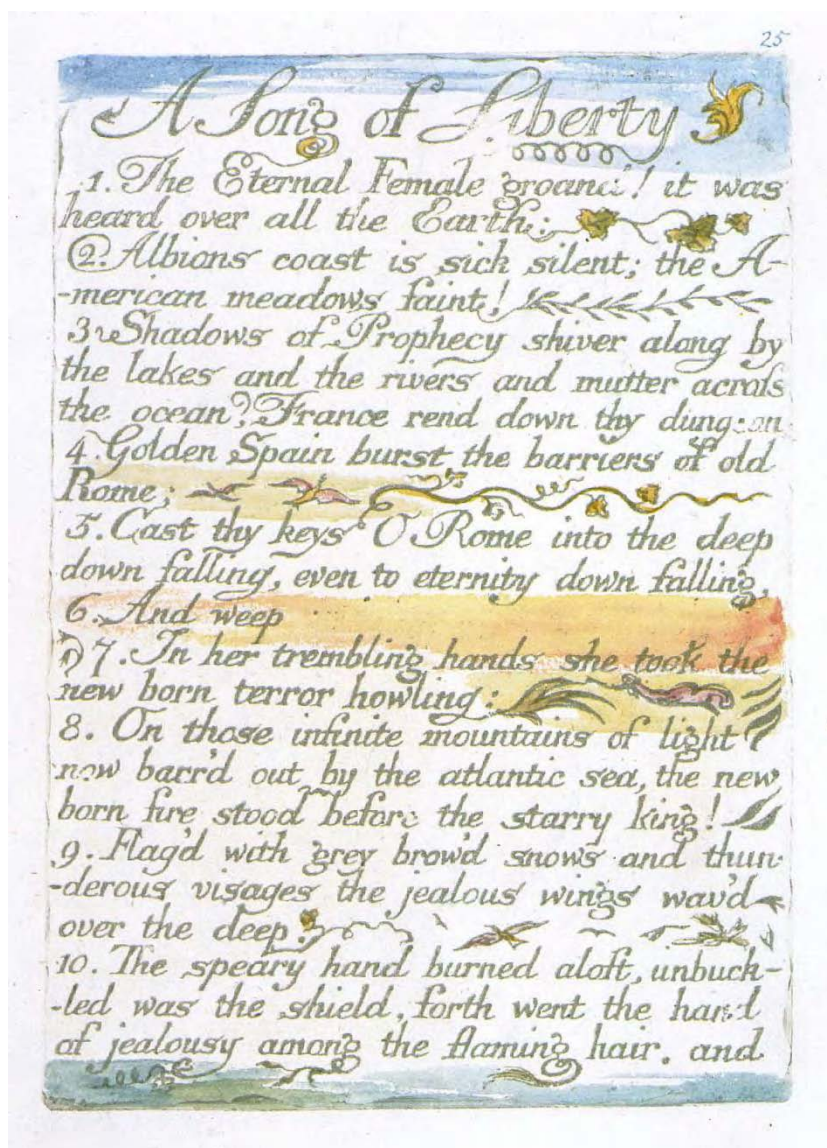 25
A Song of Liberty
1. The Eternal Female groand! it was
heard over all the Earth:
2. Albions coast is sick silent; the A-
-merican meadows faint!
3 Shadows of Prophecy shiver along by
the lakes and the rivers and mutter acroſs
the ocean? France rend down thy dungeon
4. Golden Spain burst the barriers of old
Rome;
5. Cast thy keys O Rome into the deep
down falling, even to eternity down falling,
6. And weep
7. In her trembling hands she took the
new born terror howling:
8. On those infinite mountains of light
now barr'd out by the atlantic sea, the new
born fire stood before the starry king!
9. Flag'd with grey brow'd snows and thun-
-derous visages the jealous wings wav'd
over the deep.
10. The speary hand burned aloft, unbuck-
-led was the shield, forth went the hand
of jealousy among the flaming hair. and